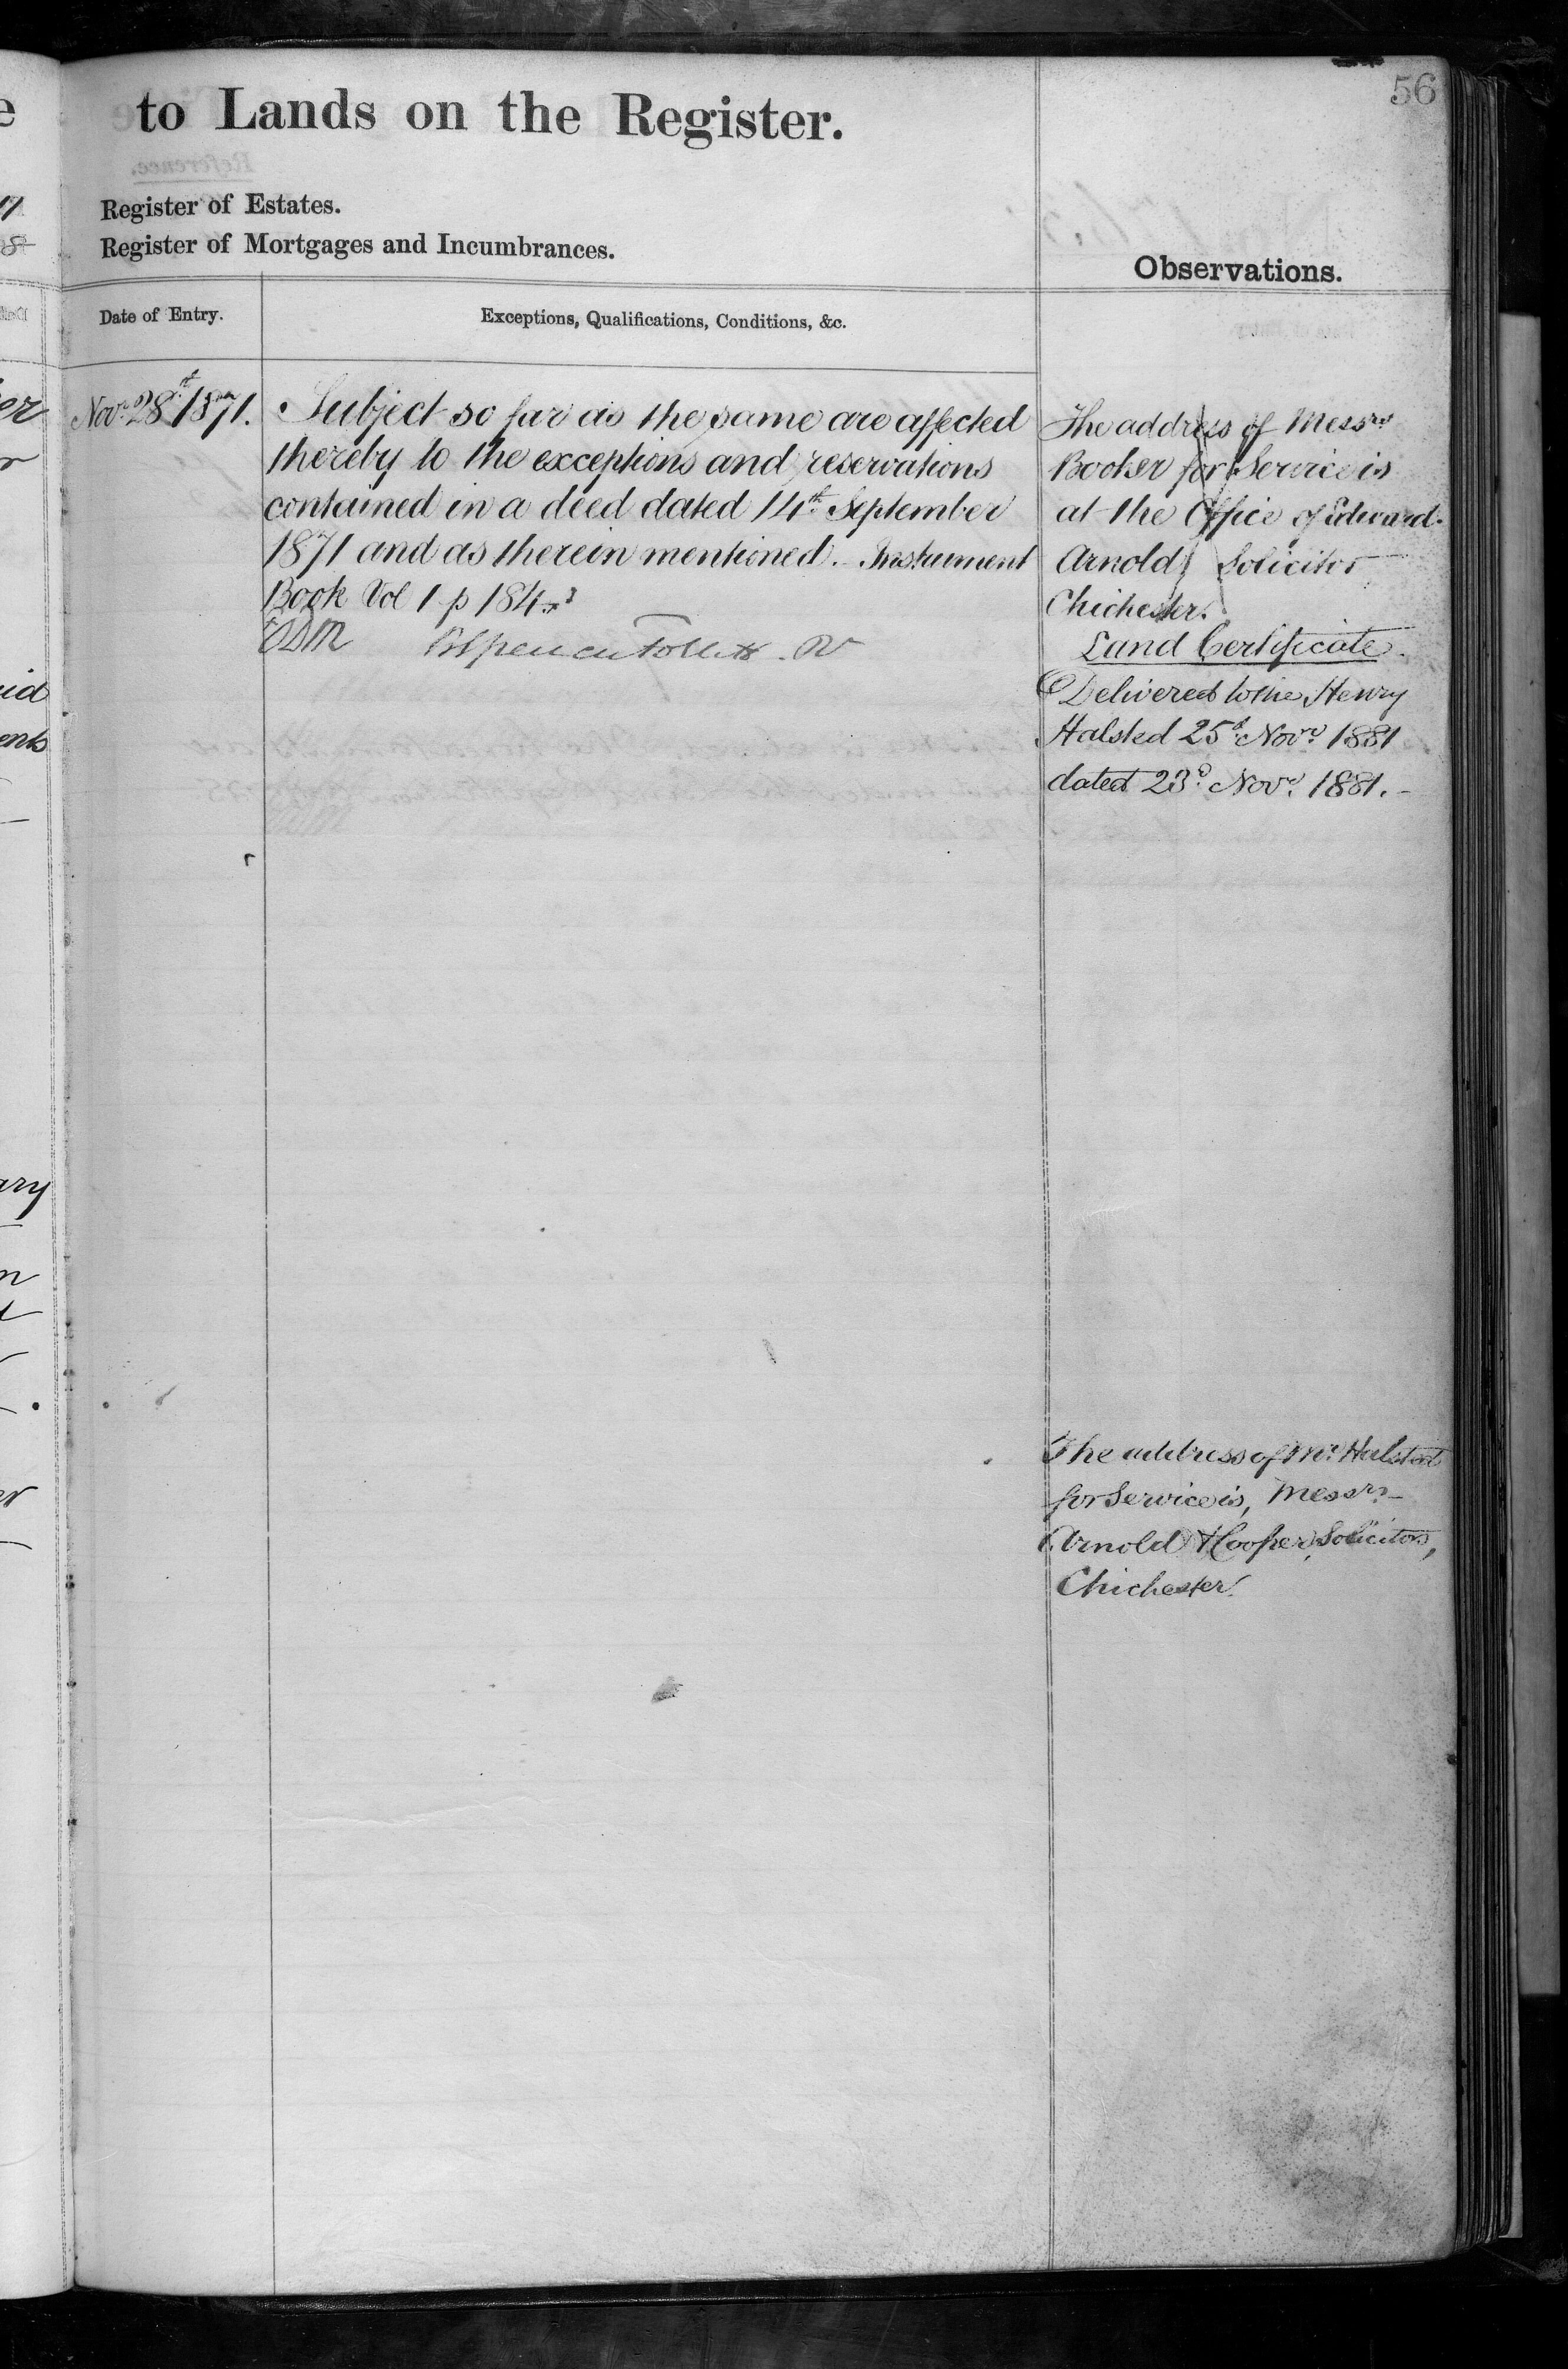 56
to Lands on the Register.
Register of Estates.
Register of Mortgages and Incumbrances.
Observations.
Date of Entry.
Exceptions, Qualifications, Conditions, &c.
Novr. 28th 1871.
Subject so far as the same are affected
thereby to the exceptions and reservations
contained in a deed dated 14th September
1871 and as therein mentioned. Instrument
Book Vol 1 p 184
The address of Messrs
Booker for Service is
at the Office of Edward
Arnold Solicitor
Chichester.
Land Certificate.
Delivered to me, Henry
Halsted 25th Novr. 1881
dated 23d. Novr. 1881.-
The address of Mr. Halsted
for Service is, Messrs.
Arnold & Cooper, Solicitors,
Chichester.